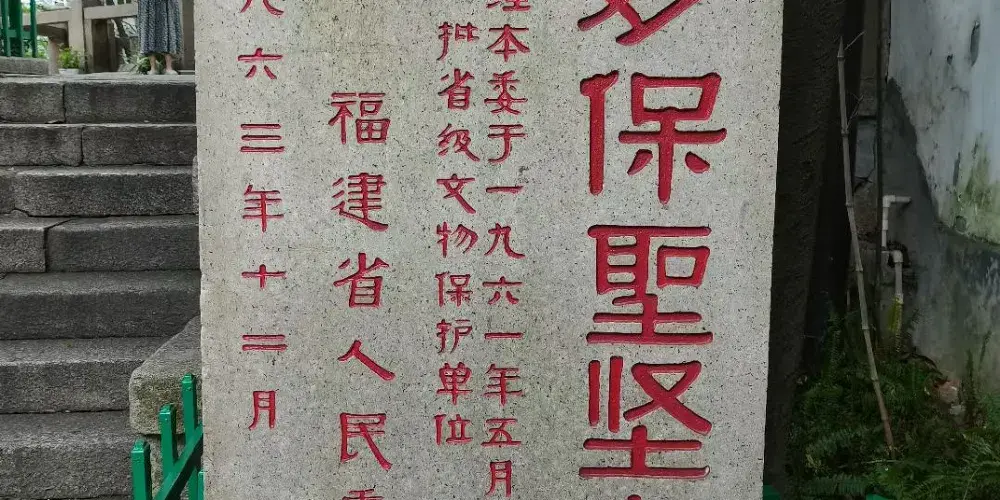 保聖坚
本委于一九六一年五月
批省级文物保护单位
福建省人民
六三年十二月